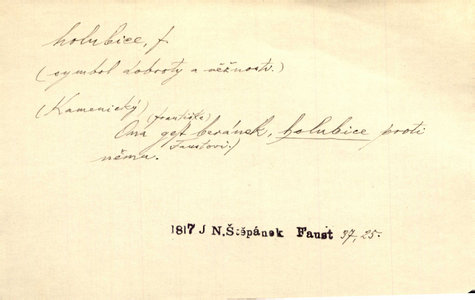 holubice, f.
(symbol dobroty a něžnosti.)
(Kamenický) (františka)
Oná get beránek, holubice proti
němu. Faustovi.)
1817 J N. Štěpánek Faust 37, 25.